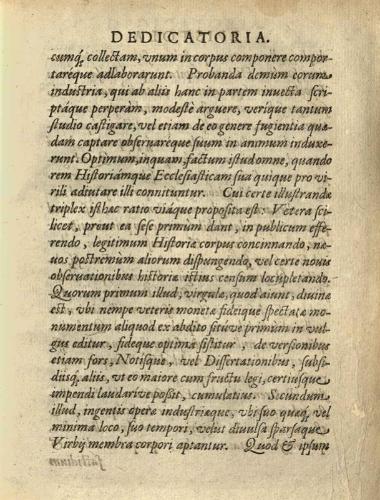 DEDICATORIA.
cumq́, collectam, vnum in corpus componere compor-
tareque adlaborarunt. Probanda demum eorum
industria, qui ab aliis hanc in partem invecta scri-
ptáque perperàm, modestè arguere, verique tantum
studio castigare, vel etiam de eo genere fugientia quæ-
dam captare observareque suum in animum induxe-
runt. Optimum, inquam, factum istud omne, quando
rem Historiámque Ecclesiasticam sua quique pro vi-
rili adiutare illi connituntur. Cui certe illustrandæ
triplex isthæc ratio viáque proposita est: Vetera sci-
licet, prout ea sese primum dant, in publicum effe-
rendo, legitimum Historiæ corpus concinnando, næ-
uos postremùm aliorum dispungendo, vel certe novis
observationibus historiæ istius censum locupletando.
Quorum primum illud, virgula, quod aiunt, divina
est, vbi nempe veteris monetæ fideique spectatæ mo-
numentum aliquod ex abdito situve primum in vul-
gus editur, fideque optima sistitur, de versionibus
etiam fors, Notisque, vel Dissertationibus, subsi-
diisq́, aliis, vt eo maiore cum fructu legi, certiusque
impendi laudarive possit, cumulatius. Secundum
illud, ingentis operæ industriæque, vbi suo quæq́, vel
minima loco, suo tempori, velut divulsa sparsaque
Virbij membra corpori aptantur. Quod & ipsum